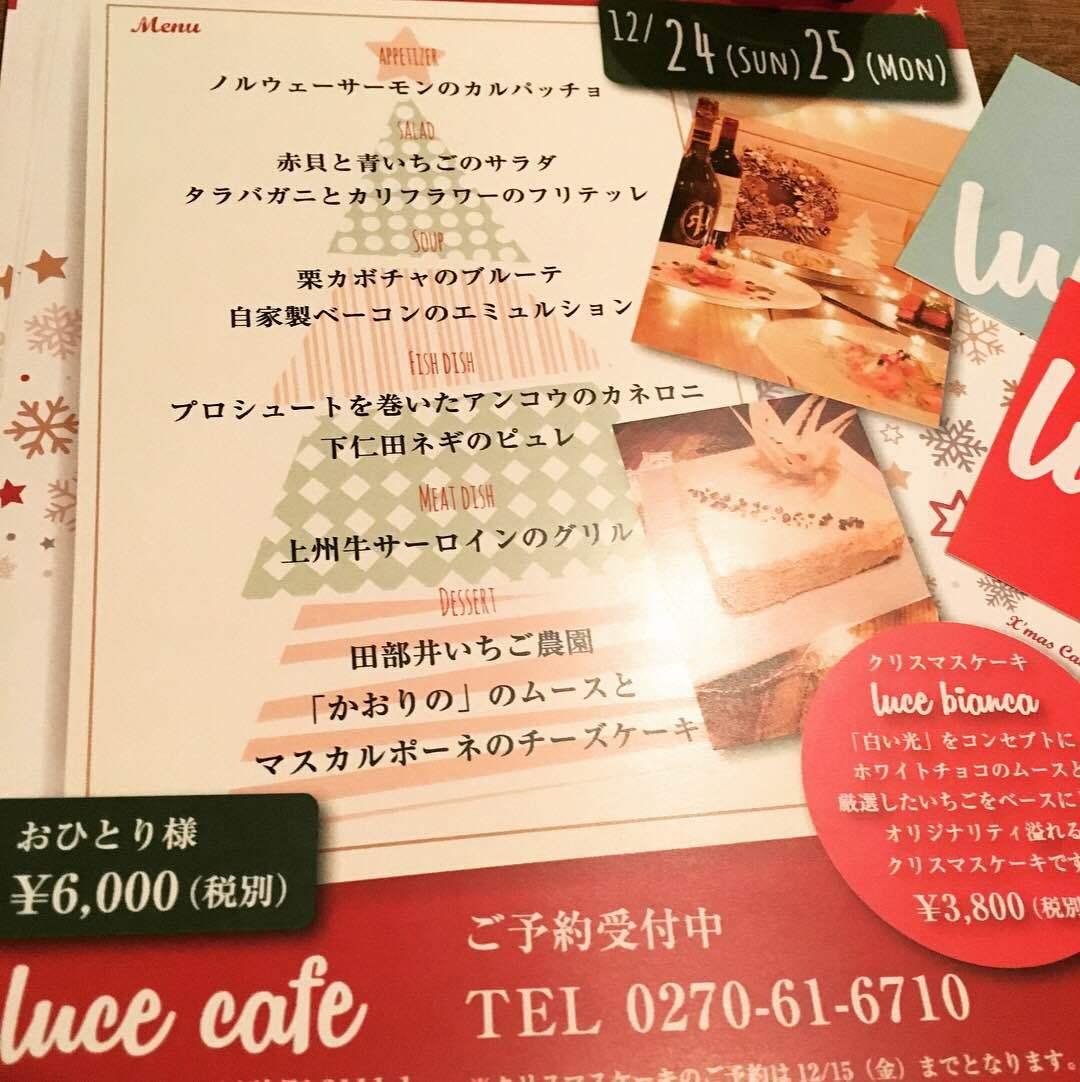 Menu
12/24(SUN)25(MON)
APPETIZER
ノルウェーサーモンのカルパッチョ
SALAD
赤貝と青いちごのサラダ
タラバガニとカリフラワーのフリテッレ
SOUP
栗カボチャのブルーテ
自家製ベーコンのエミュルション
FISH DISH
プロシュートを巻いたアンコウのカネロニ
下仁田ネギのピュレ
MEAT DISH
上州牛サーロインのグリル
DESSERT
田部井いちご農園
「かおりの」のムースと
マスカルポーネのチーズケーキ
lu
X'mas Ca
クリスマスケーキ
luce bianca
「白い光」をコンセプトに
ホワイトチョコのムースと
厳選したいちごをベースに
オリジナリティ溢れる
クリスマスケーキです
¥3,800(税別
おひとり様
¥6,000(税別)
luce cafe
ご予約受付中
TEL 0270-61-6710
※クリスマスケーキのご予約は12/15(金)までとなります。